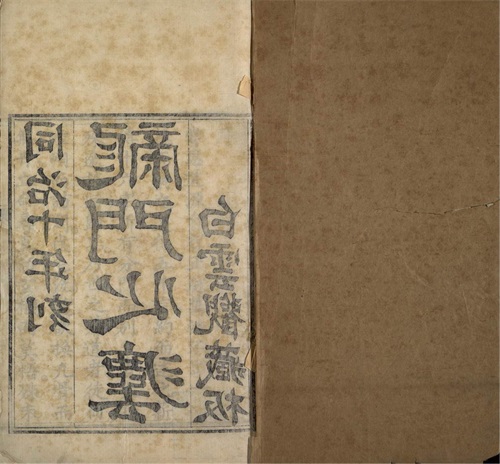 同治十年刻
龍門心灋
白雲觀藏板